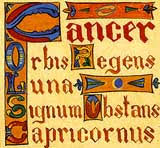 Cancer
Orbis Regens
Luna
Signum Obstans
Capricornus